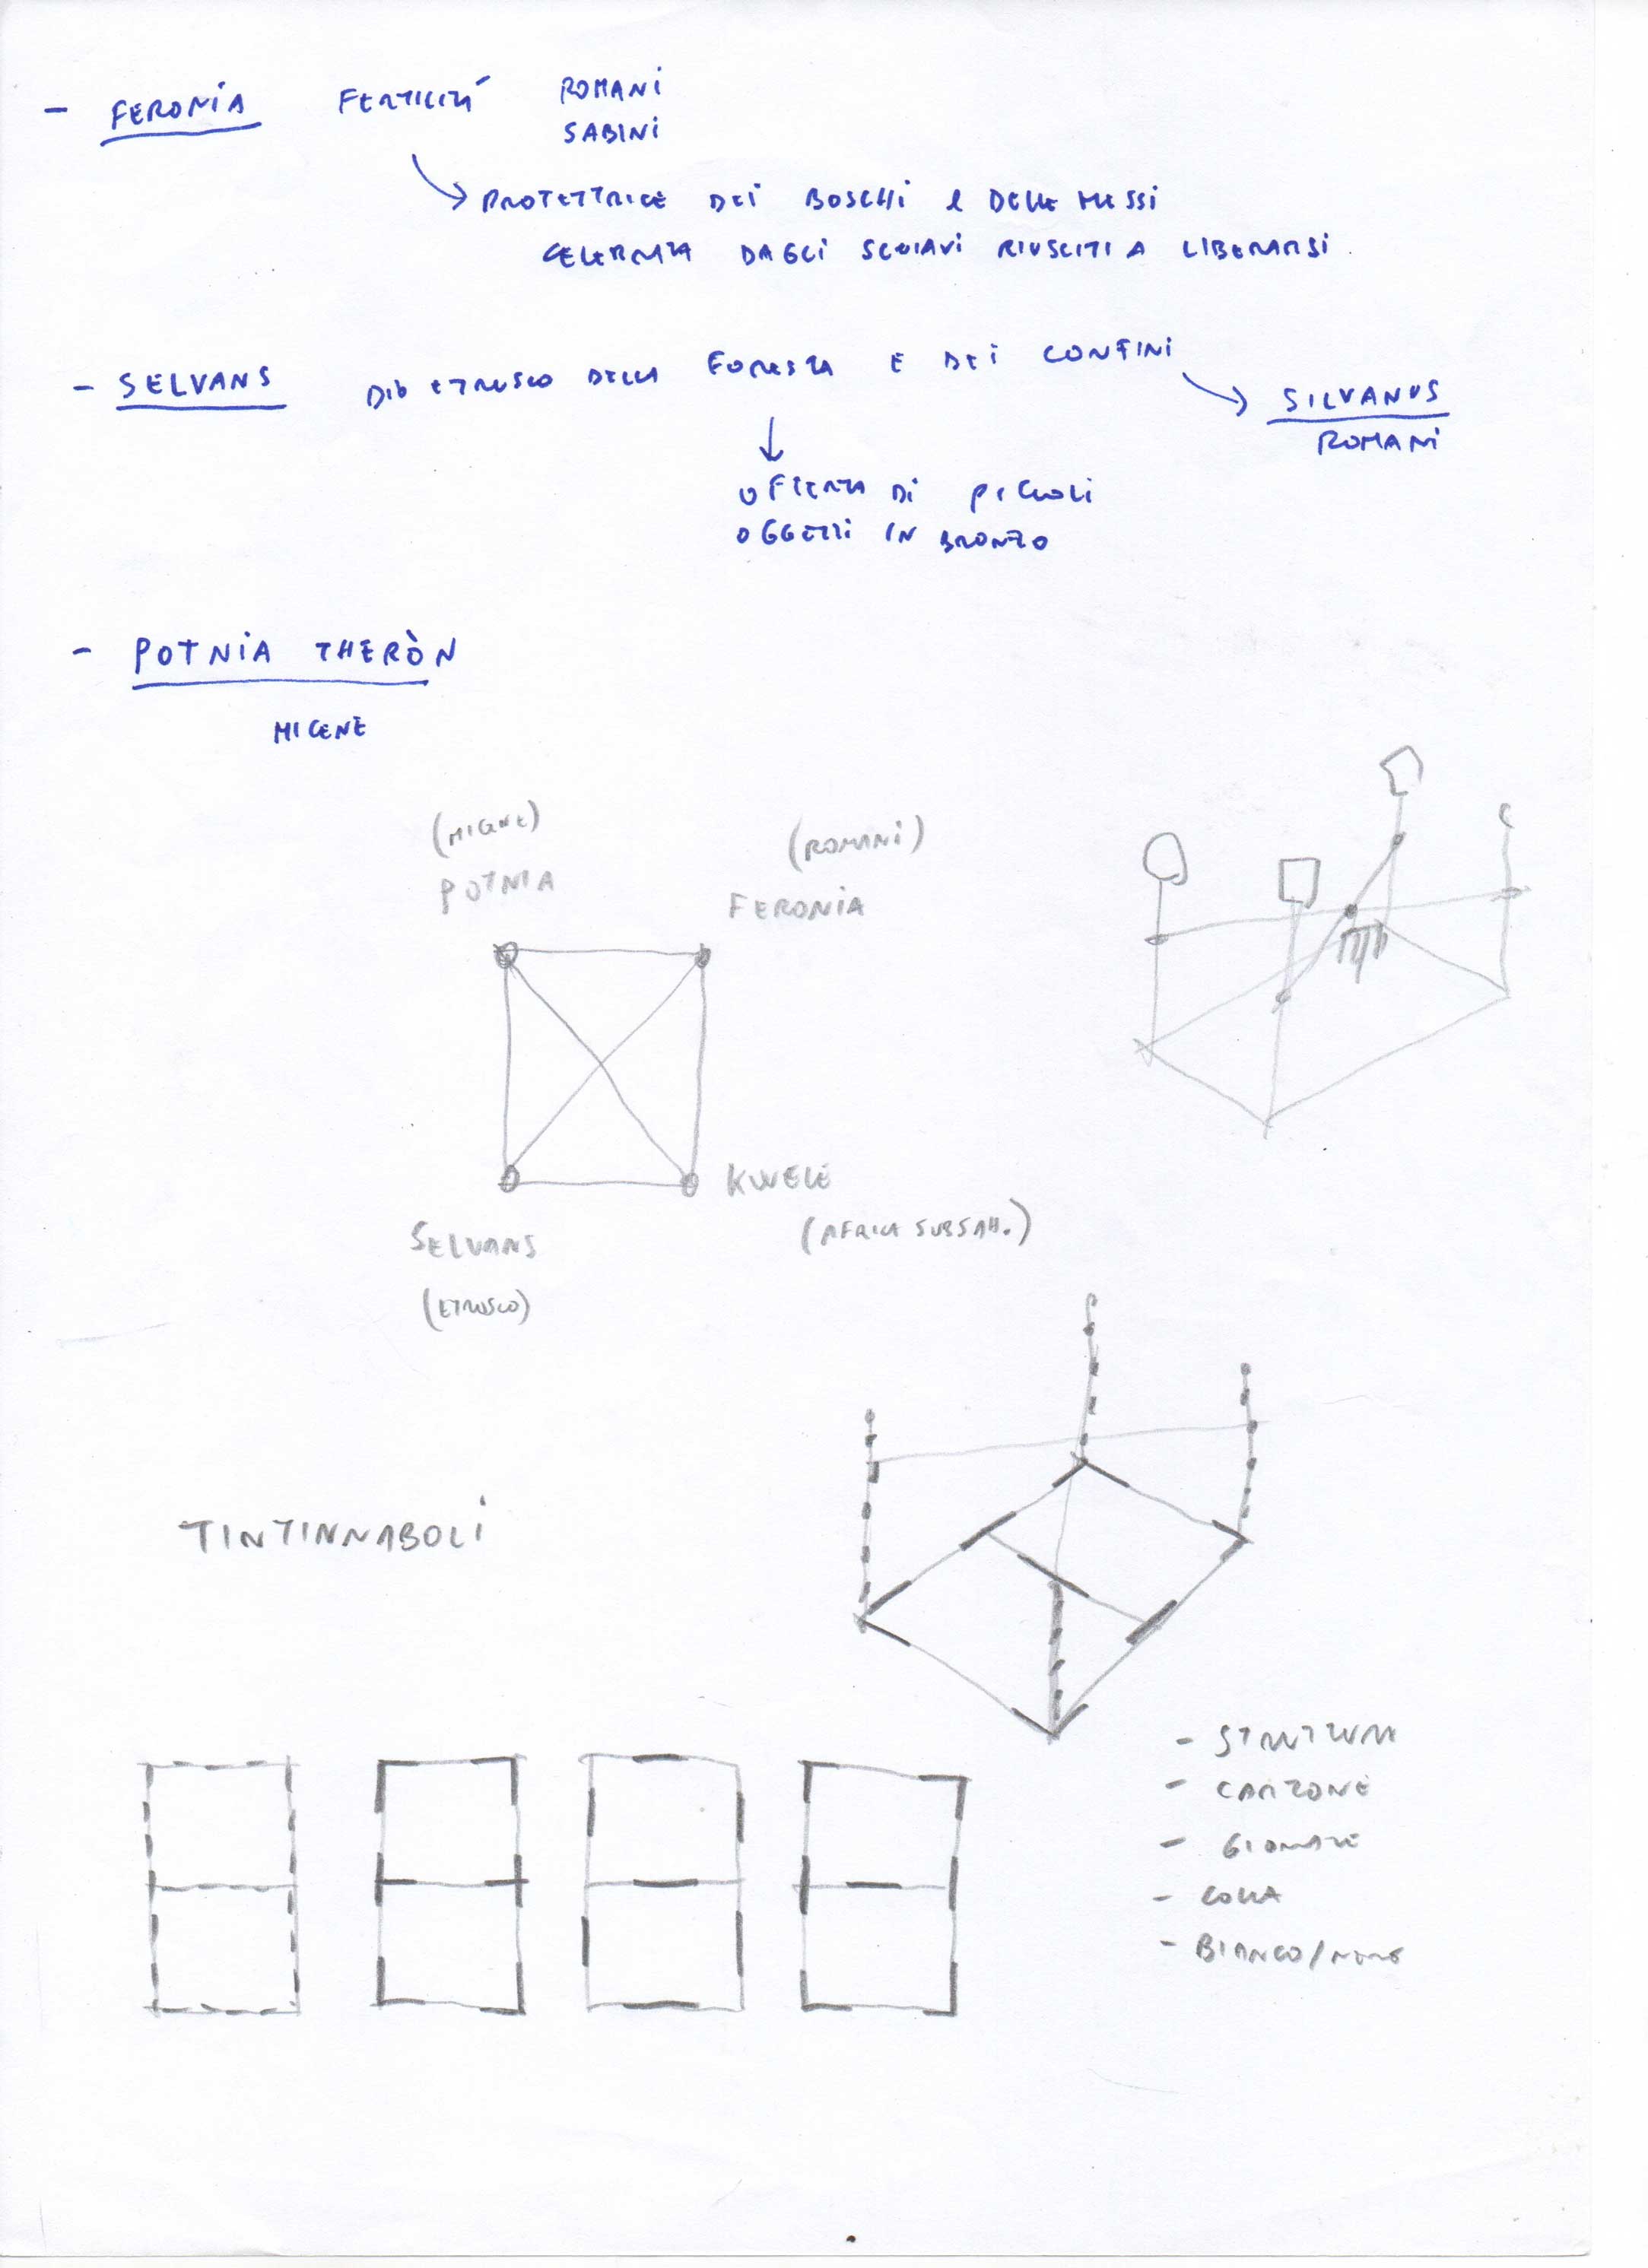 - FERONIA FERTILITÁ ROMANI
SABINI
PROTETTRICE DEI BOSCHI E DELLE MESSI
CELEBRATA DAGLI SCHIAVI RIUSCITI A LIBERARSI
- SELVANS DIO ETRUSCO DELLA FORESTA E DEI CONFINI
SILVANUS
ROMANI
OFFERTA DI PICCOLI
OGGETTI IN BRONZO
- POTNIA THERÒN
MICENE
(MICENE)
POTNIA
(ROMANI)
FERONIA
KWELE
(AFRICA SUBSAH.)
SELVANS
(ETRUSCO)
TINTINNABOLI
- STRUTTURA
- CARTONE
- GIORNALE
- COLLA
- BIANCO/NERO